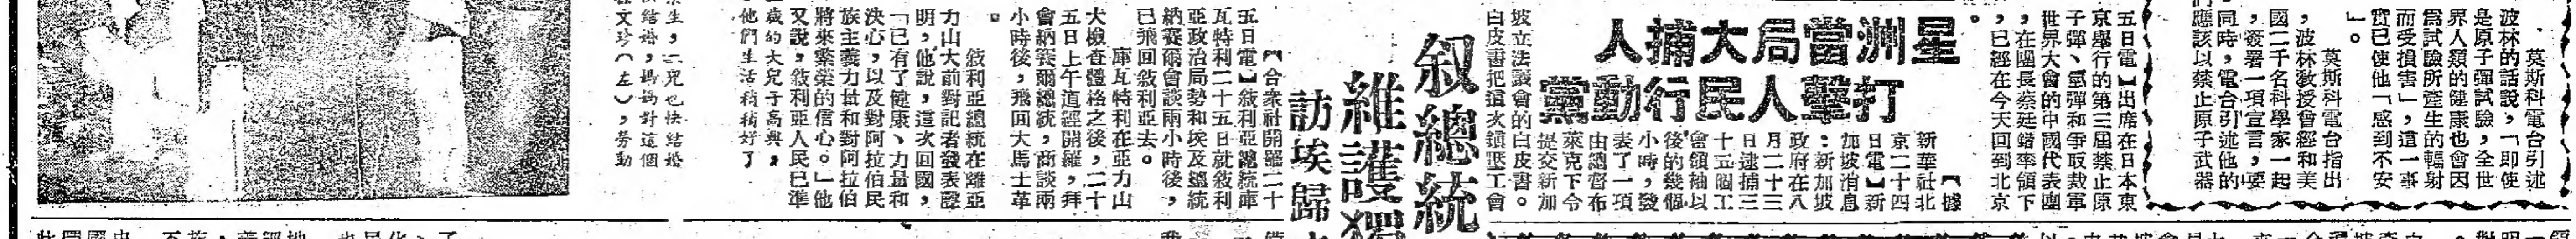 莫斯科電台引述
波林的話說，「即使
是原子彈試驗，全世
界人類的健康也會因
爲試驗所產生的輻射
而受損害」，這一事
實已使他「感到不安
」。
莫斯科電台指出
，波林敎授曾經和美
國二千名科學家一起
，簽署一項宣言，要
同時，電台引述他的
們應該以禁止原子武器
五日電】出席在日本東
京舉行的第三屆禁止原
子彈、氫彈和爭取裁軍
世界大會的中國代表團
，在團長蔡廷鍇率領下
，已經在今天回到北京
。
星洲當局大捕人
打擊人民行動黨
【據
新華社北
京二十四
日電】新
加坡消息
：新加坡
政府在八
月二十三
日逮捕三
十五個工
會領袖以
後的幾個
小時，發
表了一項
由總督布
萊克下令
提交新加
坡立法議會的白皮書。
白皮書把這次鎮壓工會
叙總統
維護
訪埃歸
【合衆社開羅二十
五日電】叙利亞總統庫
瓦特利二十五日就叙利
亞政治局勢和埃及總統
納賽爾會談兩小時後，
已飛回叙利亞去。
庫瓦特利在亞力山
大檢查體格之後，二十
五日上午道經開羅，拜
會納賽爾總統，商談兩
小時後，飛回大馬士革
。
叙利亞總統在離亞
力山大前對記者發表聲
明，他說，這次回國，
「已有了健康、力量和
決心，以及對阿拉伯民
族主義力量和對阿拉伯
將來繁榮的信心。」他
又說，叙利亞人民已準
歲的大兒子高興，
他們生活稍稍好了
生，二兒也快結婚
結婚，媽媽對這個
文珍（左），勞動